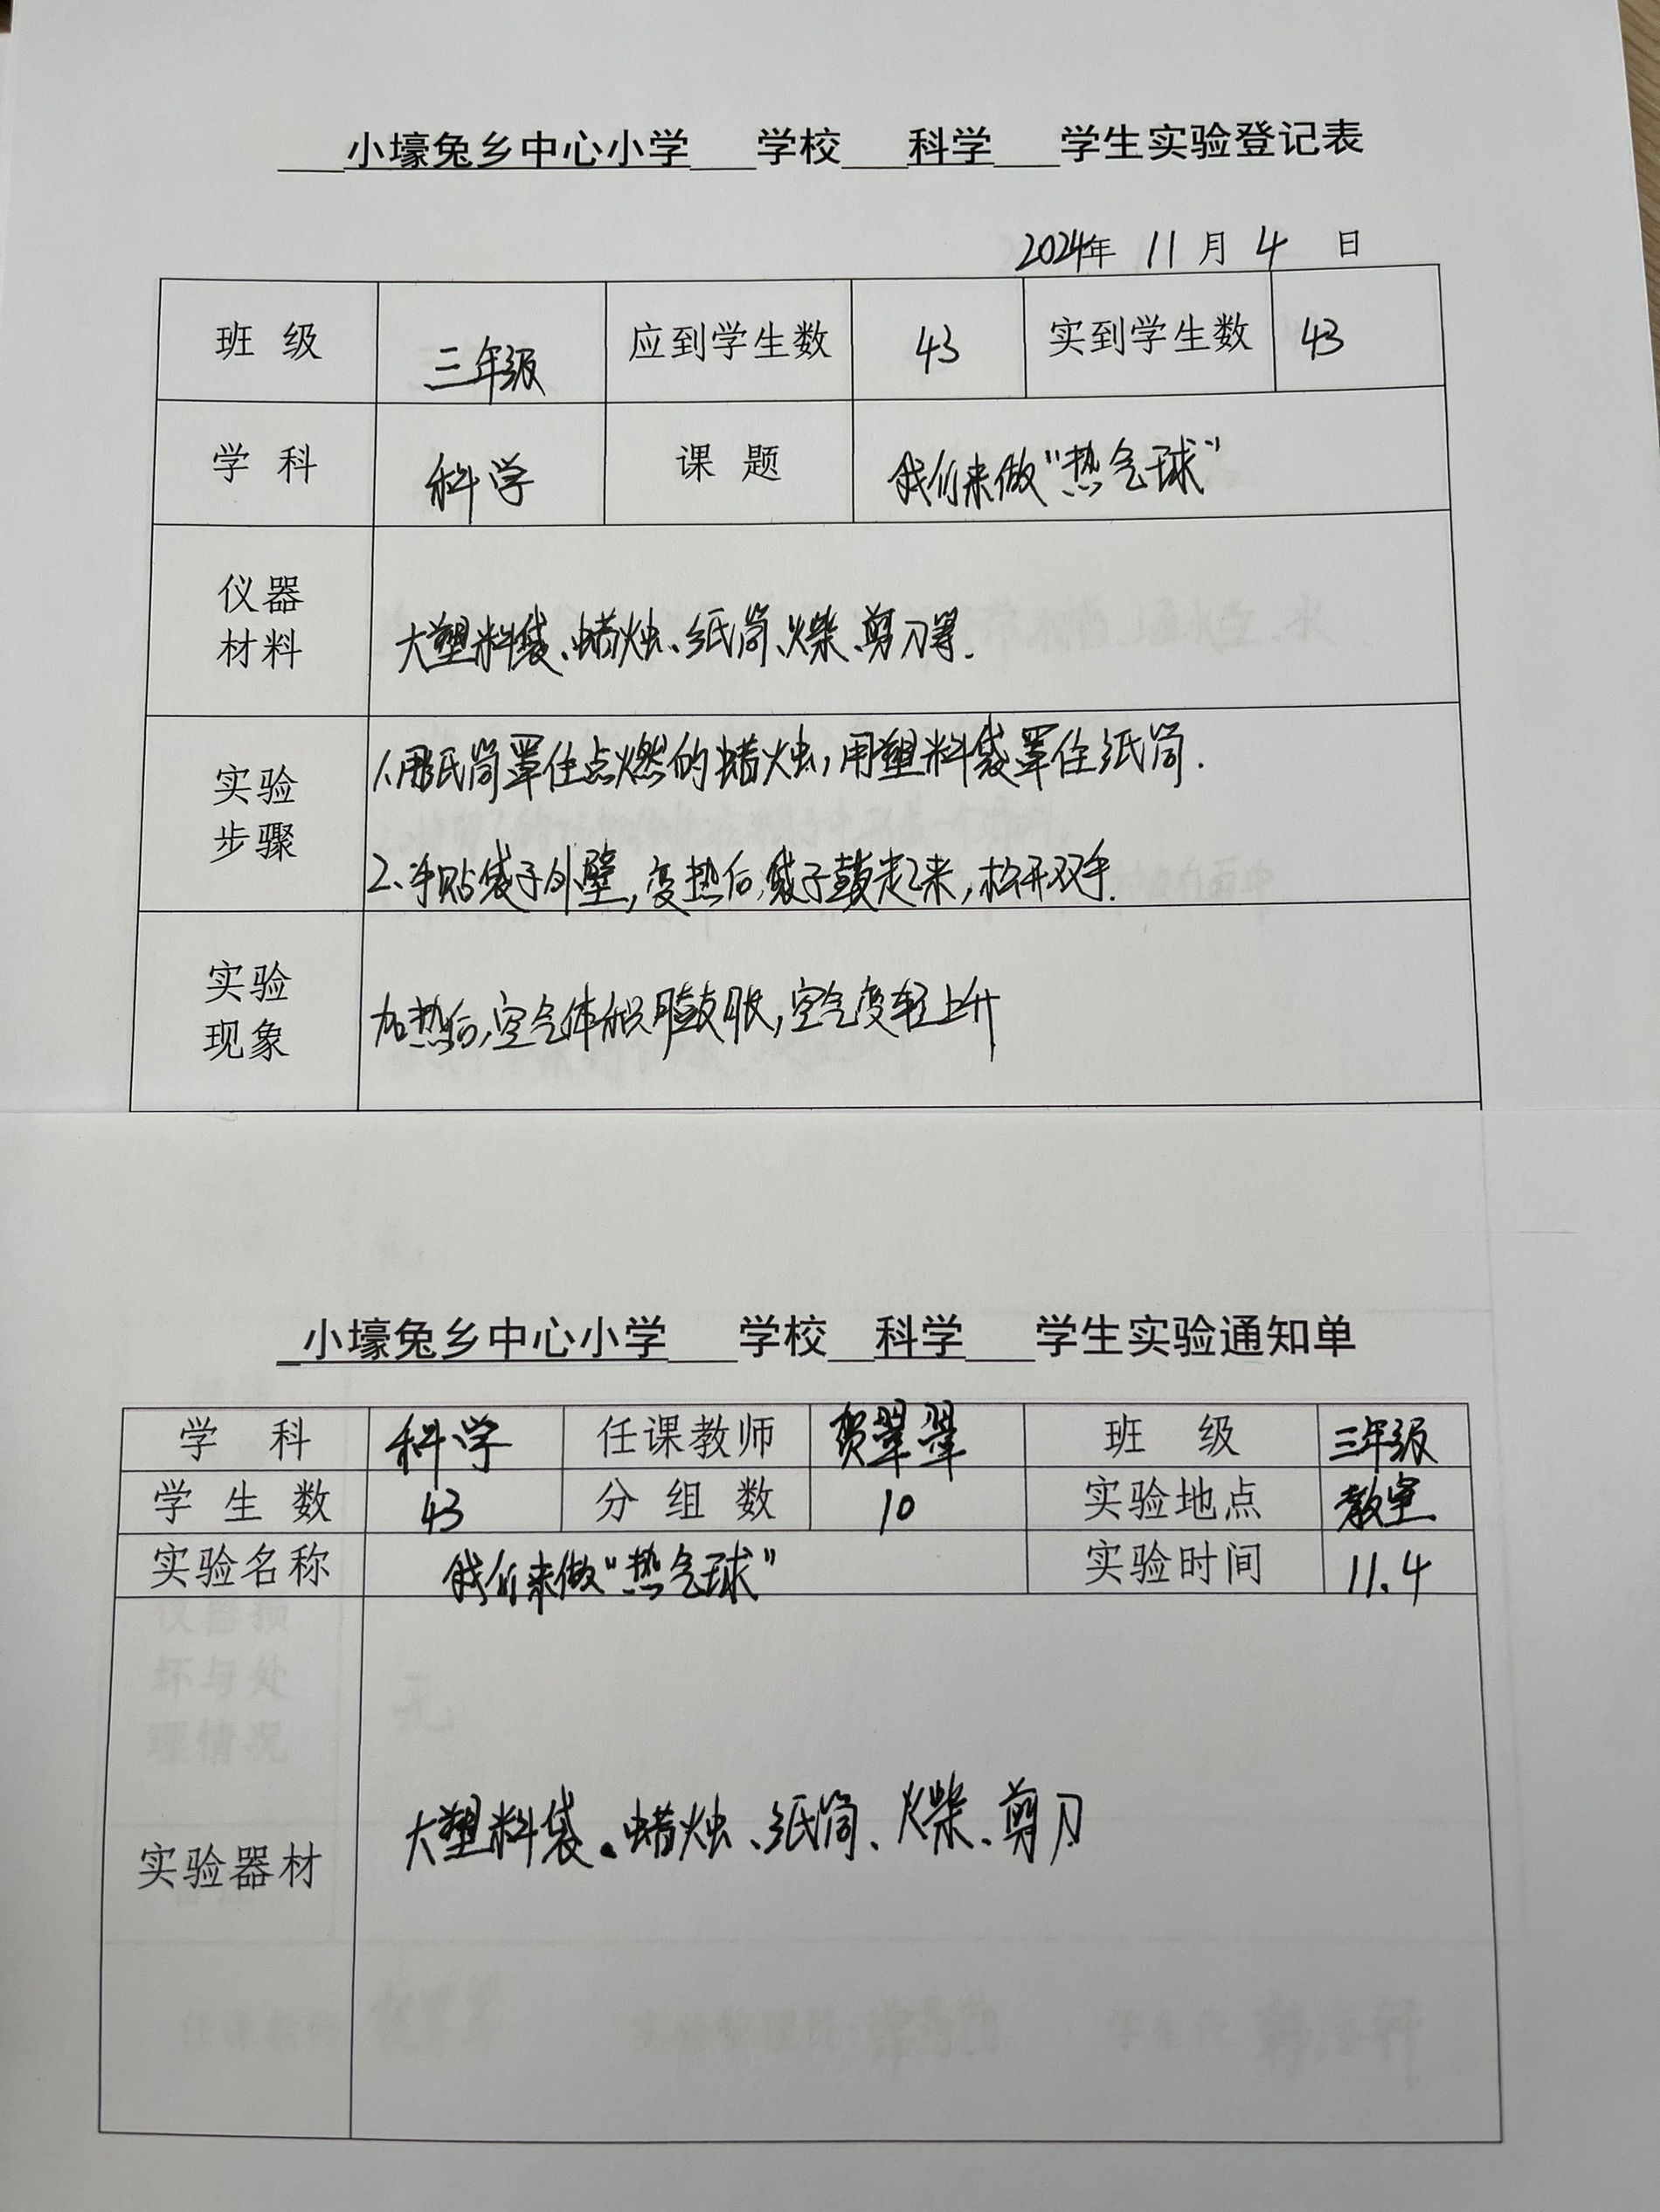 小壕兔乡中心小学 学校 科学 学生实验登记表
2024年 11月 4日
班级 三年级 应到学生数 43 实到学生数 43
学科 科学 课题 我们来做“热气球”
仪器
材料
大塑料袋、蜡烛、纸筒、火柴、剪刀等.
实验
步骤
1、用纸筒罩住点燃的蜡烛,用塑料袋罩住纸筒.
2、手贴袋子外壁,变热后,袋子鼓起来,松开双手.
实验
现象
加热后,空气体积膨胀,空气变轻上升
小壕兔乡中心小学 学校 科学 学生实验通知单
学科 科学 任课教师 贺翠翠 班级 三年级
学生数 43 分组数 10 实验地点 教室
实验名称 我们来做“热气球” 实验时间 11.4
实验器材 大塑料袋、蜡烛、纸筒、火柴、剪刀